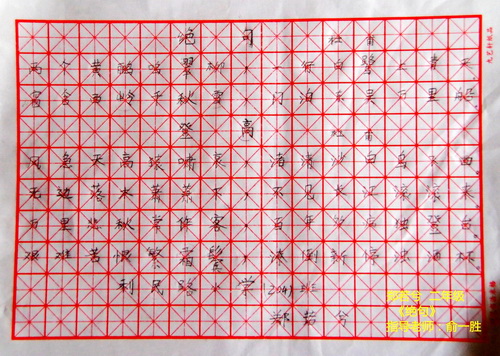 绝句 杜甫
两个黄鹂鸣翠柳,一行白鹭上青天
窗含西岭千秋雪,门泊东吴万里船
登高 杜甫
风急天高猿啸哀,渚清沙白鸟飞回
无边落木萧萧下,不长江滚滚来
万里悲秋常作客,百年多病独登台
艰难苦恨繁霜鬓,潦倒新停浊酒杯
利民路小学(204)班
郑若兮
郑若兮 二年级
《绝句》
指导老师 俞一胜